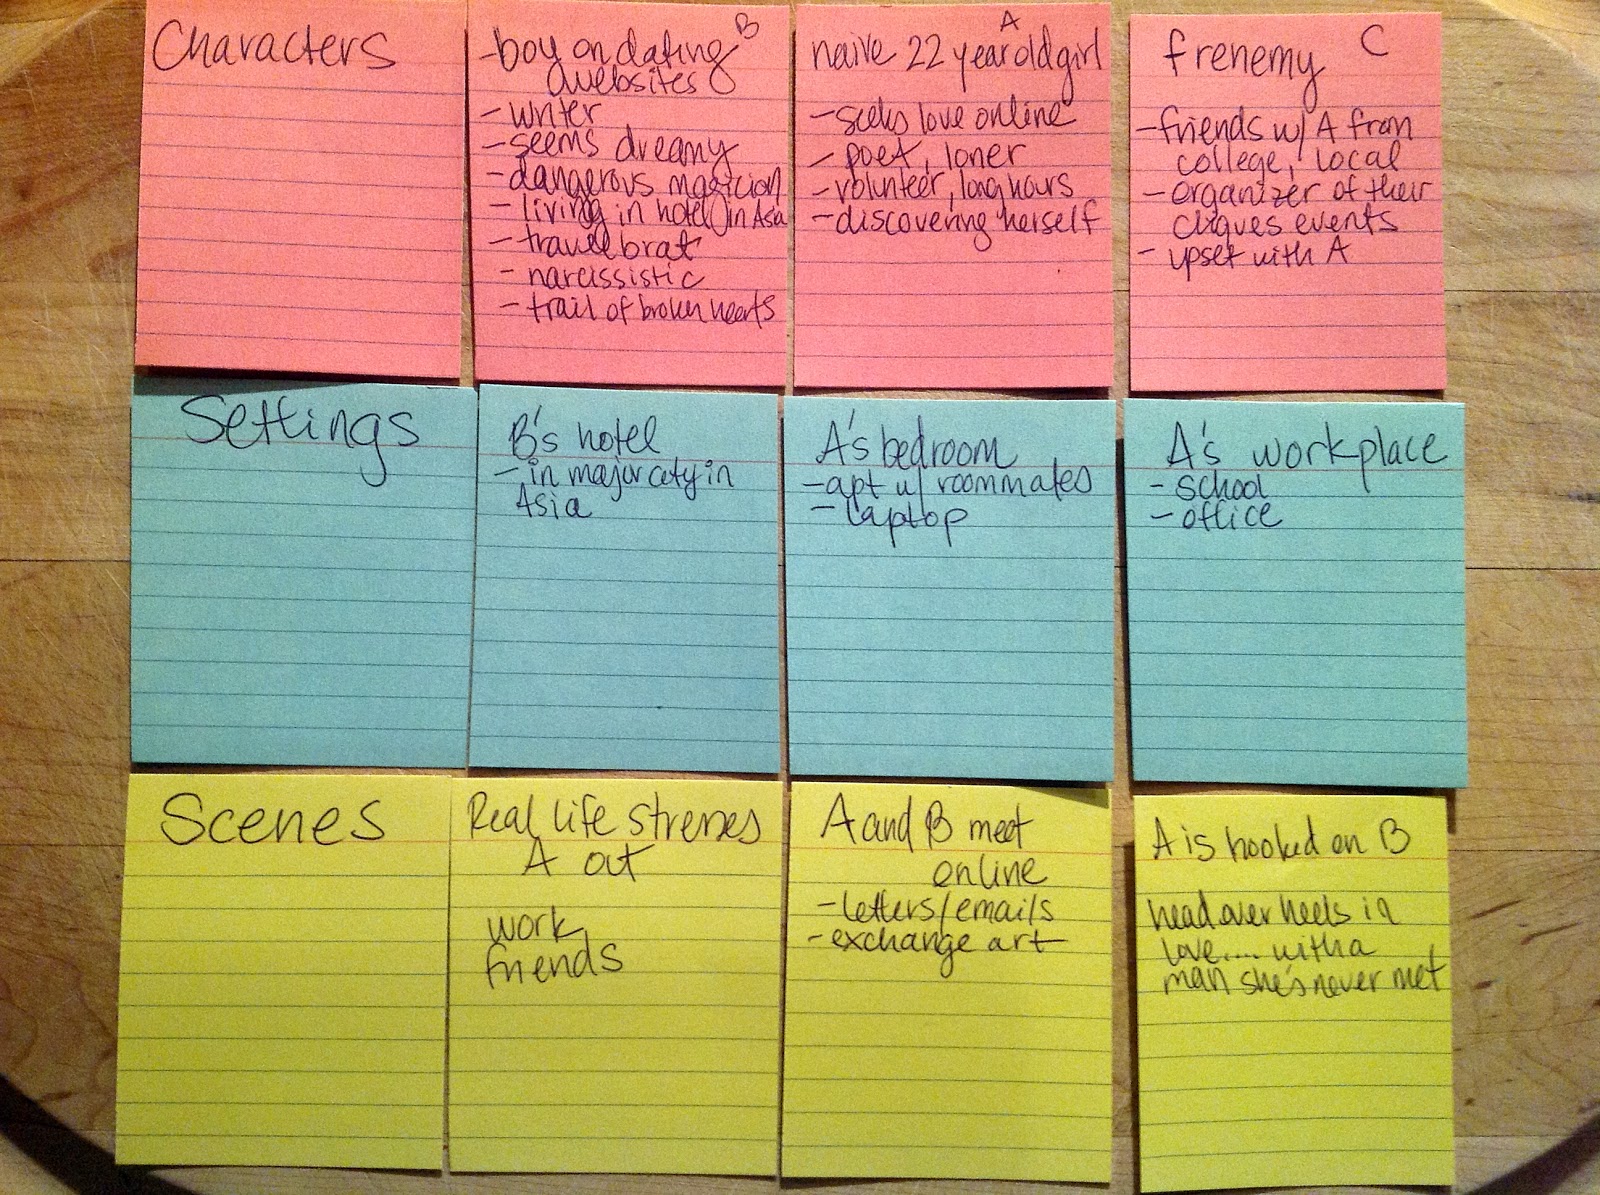 Characters
B
-boy on dating
websites
- writer
- seems dreamy
- dangerous magician
- living in hotel in Asia
- travel brat
- narcissistic
- trail of broken hearts
A
naive 22 year old girl
- seeks love online
- poet, loner
- volunteer, long hours
- discovering herself
frenemy C
- friends w/ A from
college, local
- organizer of their
cliques events
- upset with A
Settings
B's hotel
- in major city in
Asia
A's bedroom
- apt w/ roommates
- laptop
A's workplace
- school
- office
Scenes
Real life stresses
A out
work
friends
A and B meet
online
- letters/emails
- exchange art
A is hooked on B
head over heels in
love.... with a
man she's never met